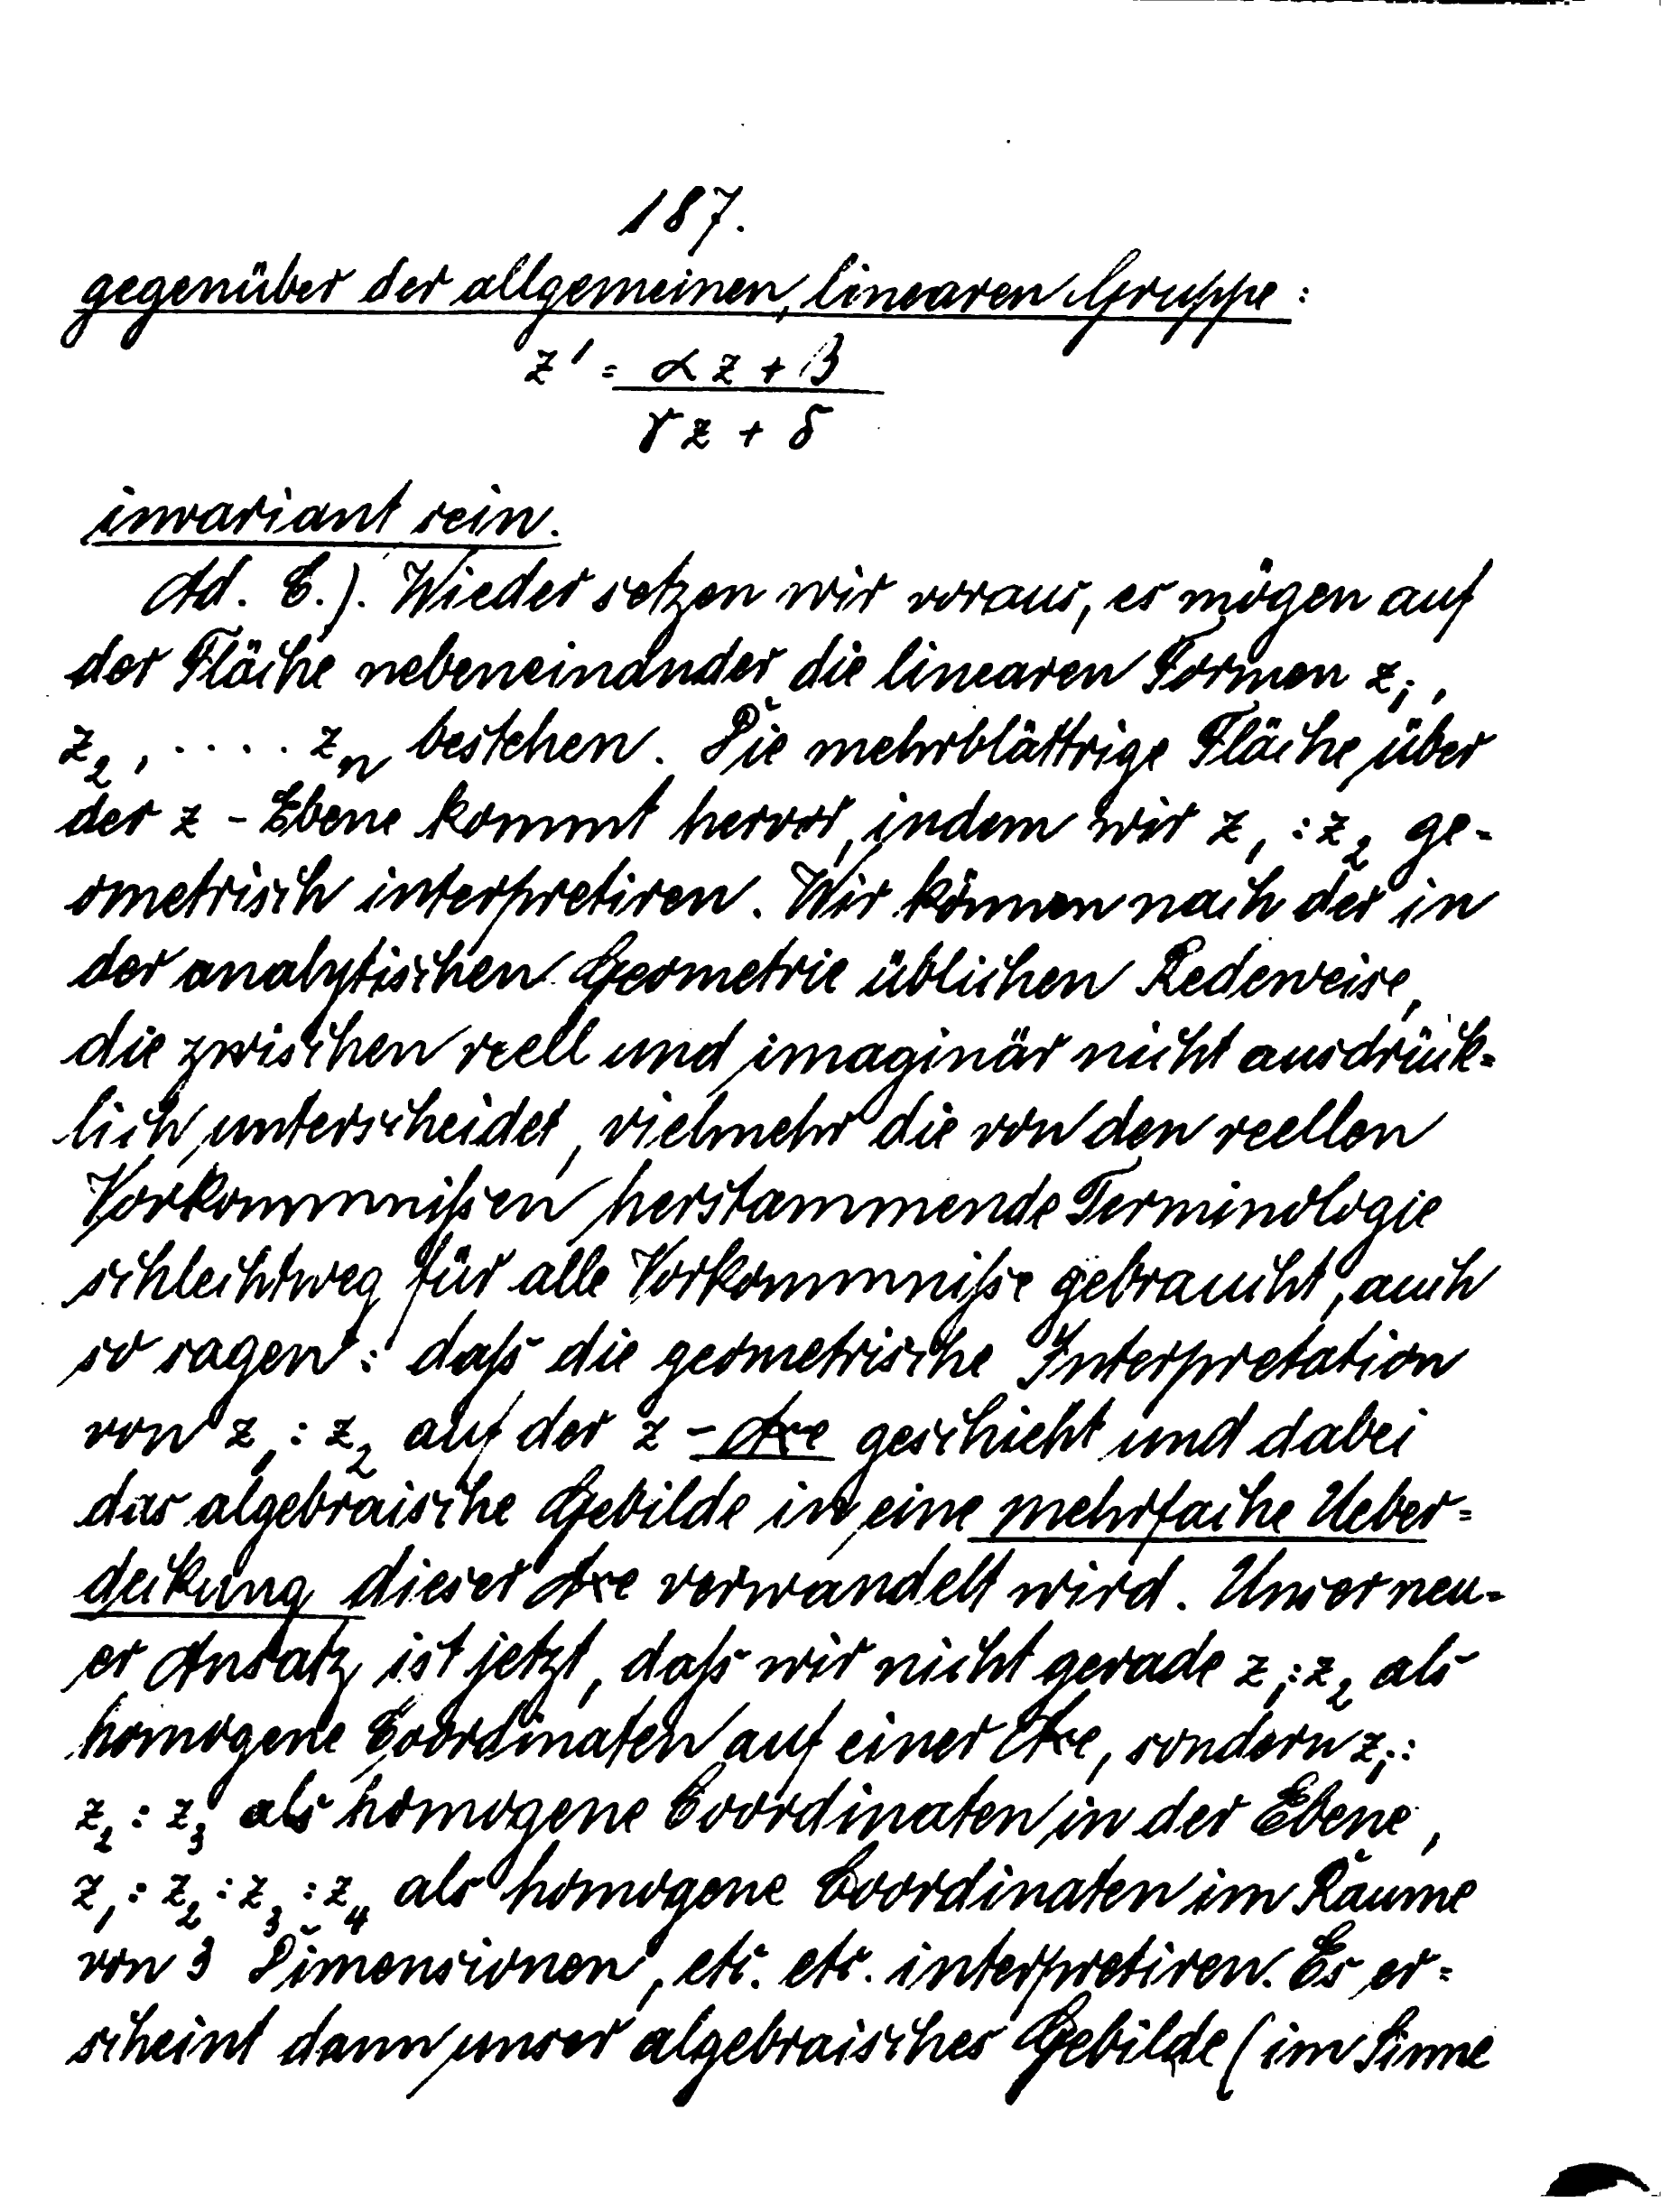 187.
gegenüber der allgemeinen, linearen Gruppe:
z' = αz + β
γz + δ
invariant sein.
Ad. C.). Wieder setzen wir voraus, es mögen auf
der Fläche nebeneinander die linearen Formen z₁,
z₂, .... zₙ bestehen. Die mehrblättrige Fläche über
der z-Ebene kommt hervor, indem wir z₁:z₂ ge-
ometrisch interpretiren. Wir können nach der in
der analytischen Geometrie üblichen Redeweise,
die zwischen reell und imaginär nicht ausdrück-
lich unterscheidet, vielmehr die von den reellen
Vorkommnißen herstammende Terminologie
schlechtweg für alle Vorkommniße gebraucht, auch
so sagen: daß die geometrische Interpretation
von z₁:z₂ auf der z-Axe geschieht und dabei
das algebraische Gebilde in eine mehrfache Ueber=
deckung dieser Axe verwandelt wird. Unser neu-
er Ansatz ist jetzt, daß wir nicht gerade z₁:z₂ als
homogene Coordinaten auf einer Axe, sondern z₁:
z₂:z₃ als homogene Coordinaten in der Ebene,
z₁:z₂:z₃:z₄ als homogene Coordinaten im Raume
von 3 Dimensionen, etc. etc. interpretiren. Es er=
scheint dann unser algebraisches Gebilde (im Sinne